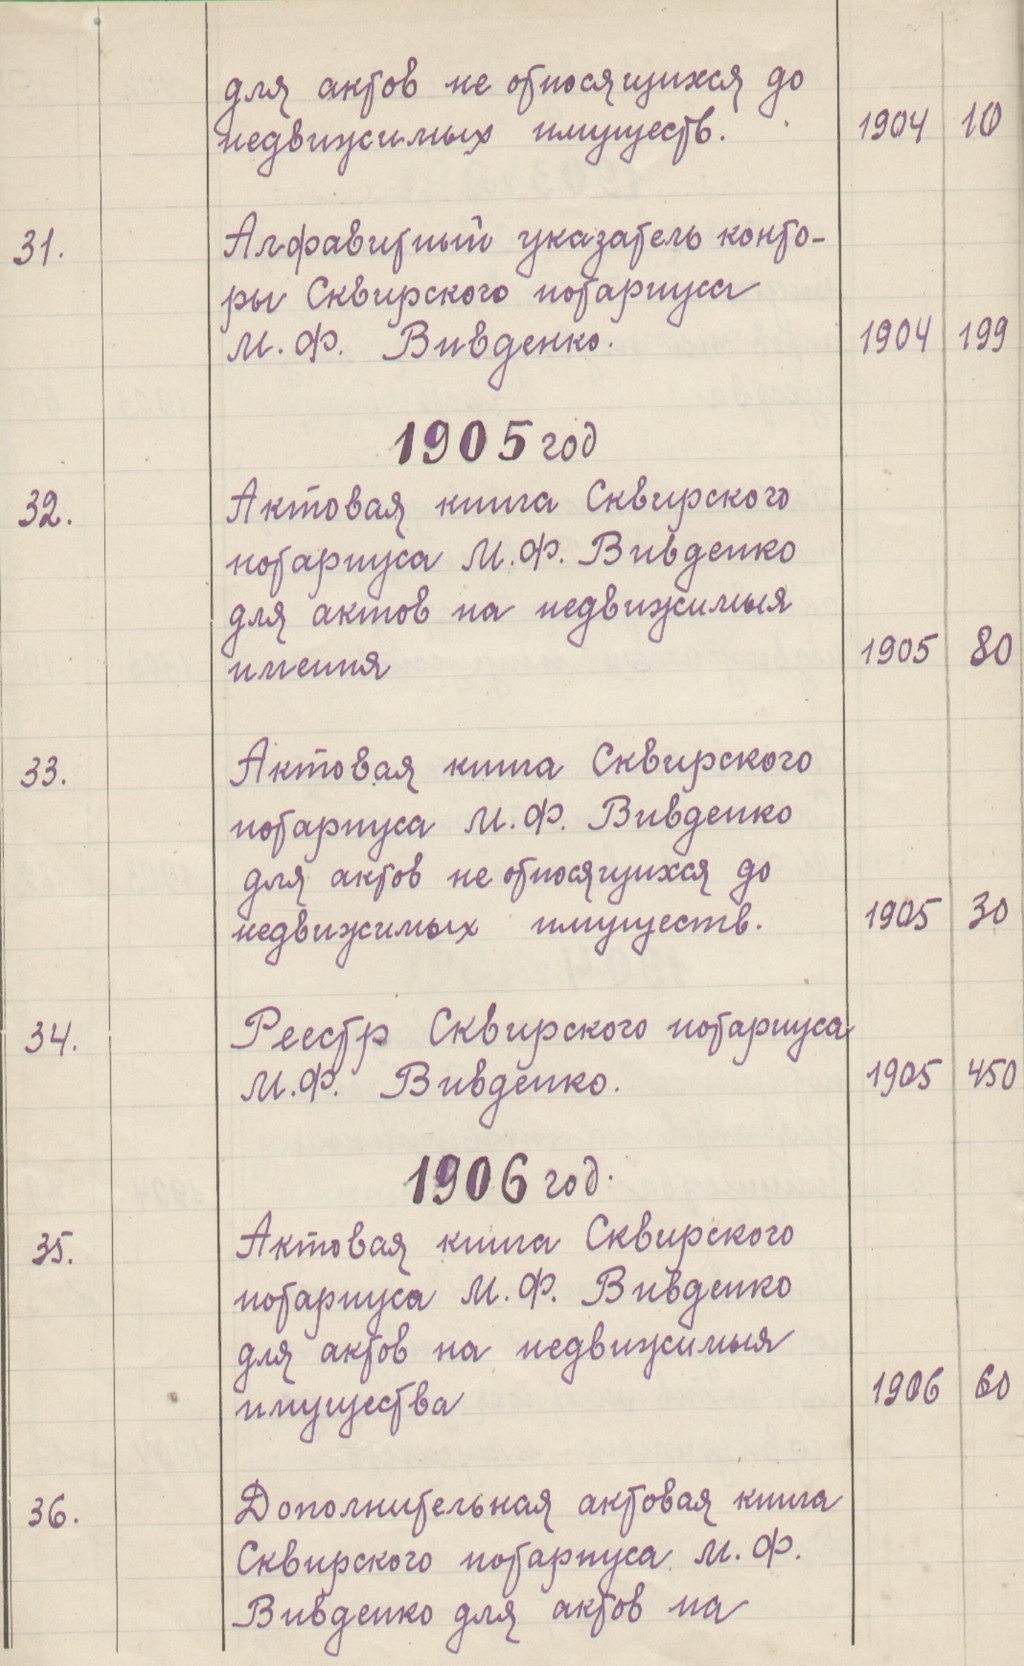 для актов не относящихся до
недвижимых имуществ. 1904 10
31. Алфавитный указатель конто-
ры Сквирского нотариуса
М. Ф. Вивденко. 1904 199
1905 год
32. Актовая книга Сквирского
нотариуса М. Ф. Вивденко
для актов на недвижимыя
имения 1905 80
33. Актовая книга Сквирского
нотариуса М. Ф. Вивденко
для актов не относящихся до
недвижимых имуществ. 1905 30
34. Реестр Сквирского нотариуса
М. Ф. Вивденко. 1905 450
1906 год.
35. Актовая книга Сквирского
нотариуса М. Ф. Вивденко
для актов на недвижимыя
имущества 1906 60
36. Дополнительная актовая книга
Сквирского нотариуса М. Ф.
Вивденко для актов на